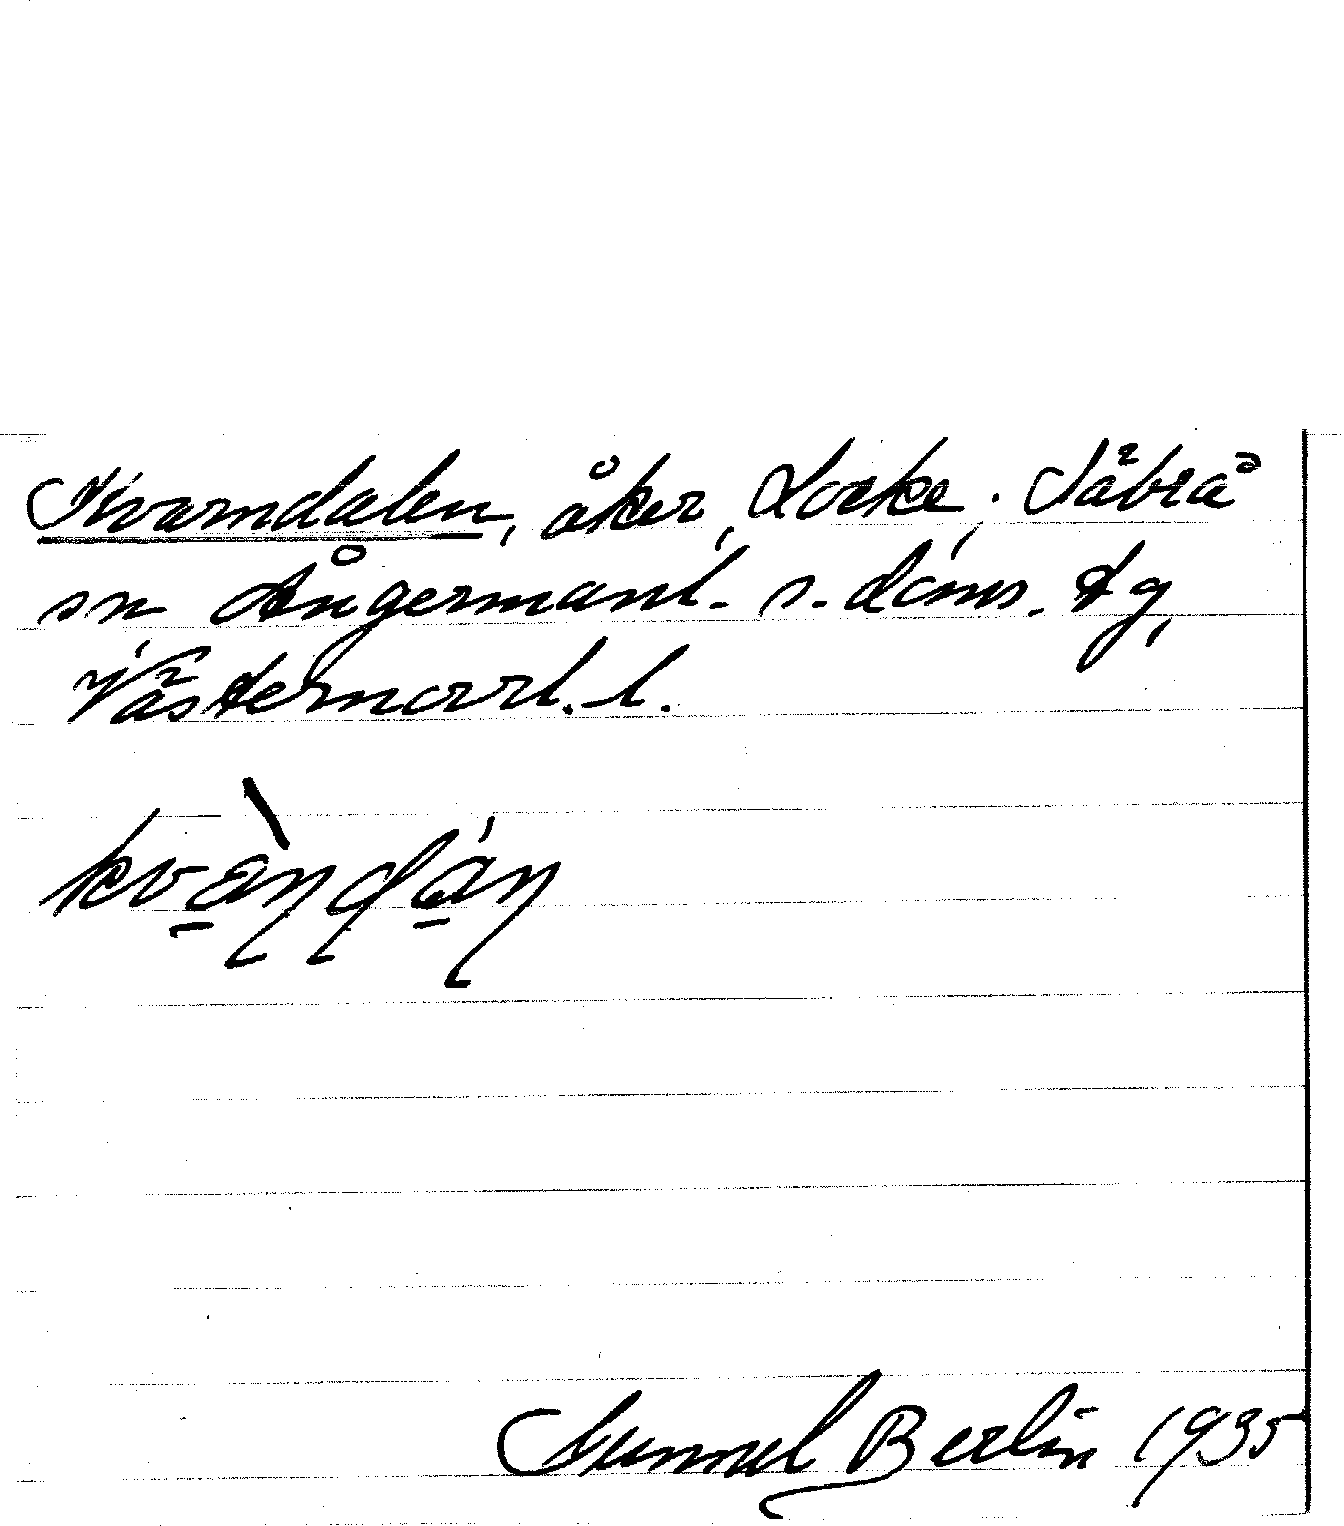 Kvarndalen, åker, Locke, Säbrå
sn Ångermanl. s. doms. tg,
Västernorrl. l.
kvàṇḍáṇ
Gunnel Berlin 1935